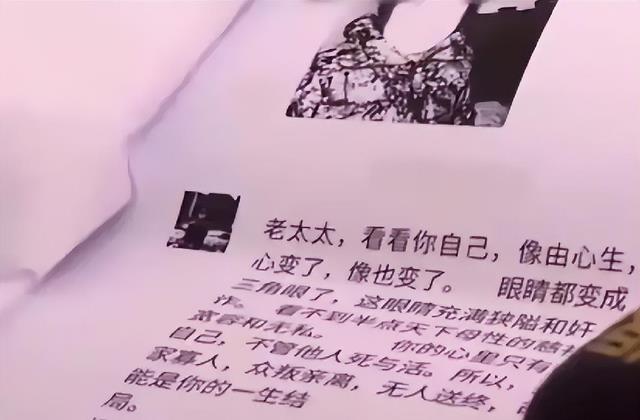 老太太，看看你自己，像由心生，
心变了，像也变了。 眼睛都变成
三角眼了，这眼睛充满狭隘和奸
诈。看不到半点天下母性的慈祥
宽容和无私。 你的心里只有
自己，不管他人死与活。所以，
家事人，众叛亲离，无人送终，
能是你的一生结
局。